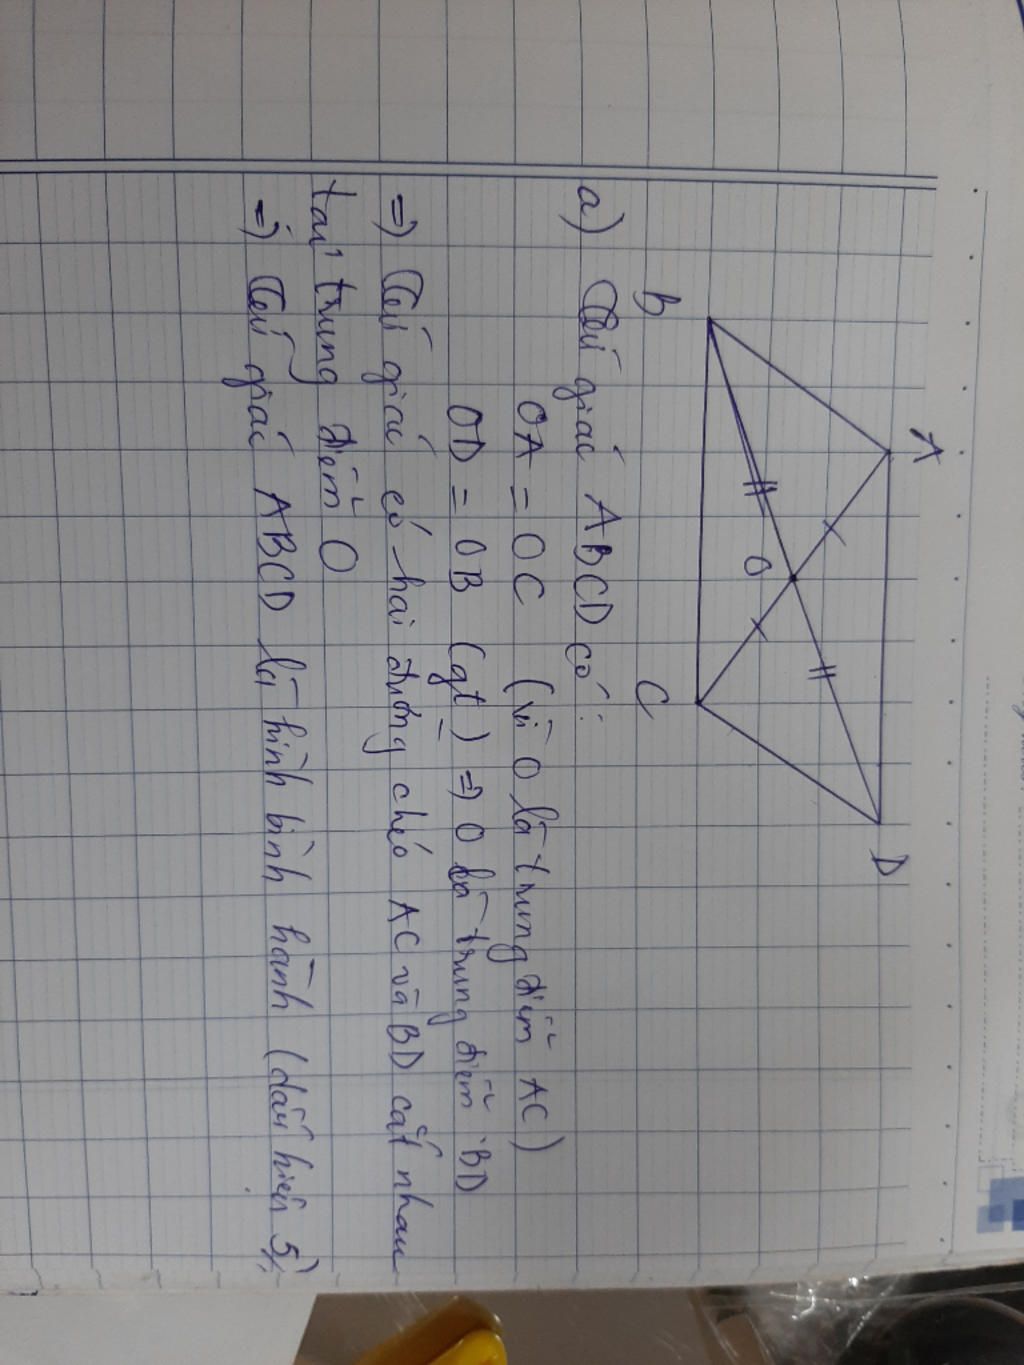 A
D
O
B
C
a) Tứ giác ABCD có:
OA = OC (vì O là trung điểm AC)
OD = OB (gt) => O là trung điểm BD
=> Tứ giác có hai đường chéo AC và BD cắt nhau
tại trung điểm O
=> Tứ giác ABCD là hình bình hành (dấu hiệu 5)